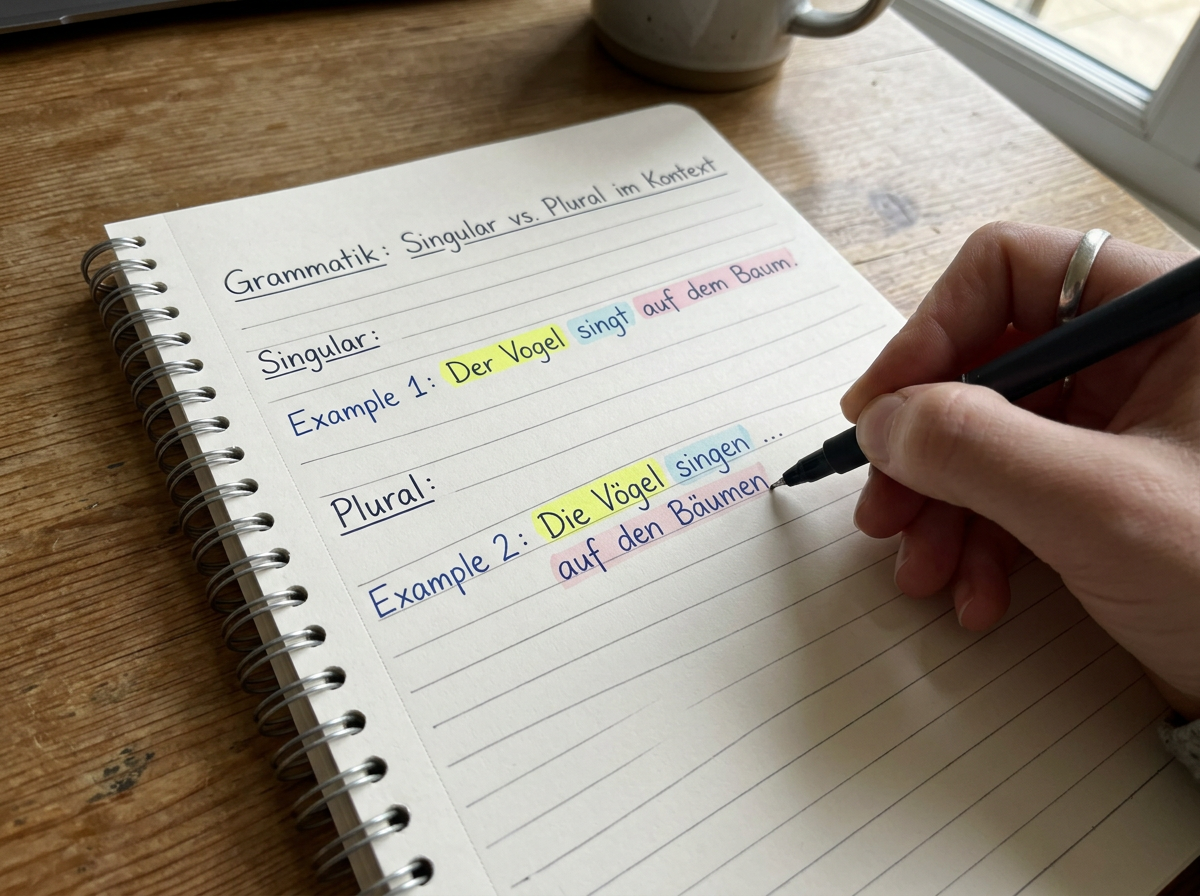 Grammatik: Singular vs. Plural im Kontext
Singular:
Example 1: Der Vogel singt auf dem Baum.
Plural:
Example 2: Die Vögel singen ...
auf den Bäumen